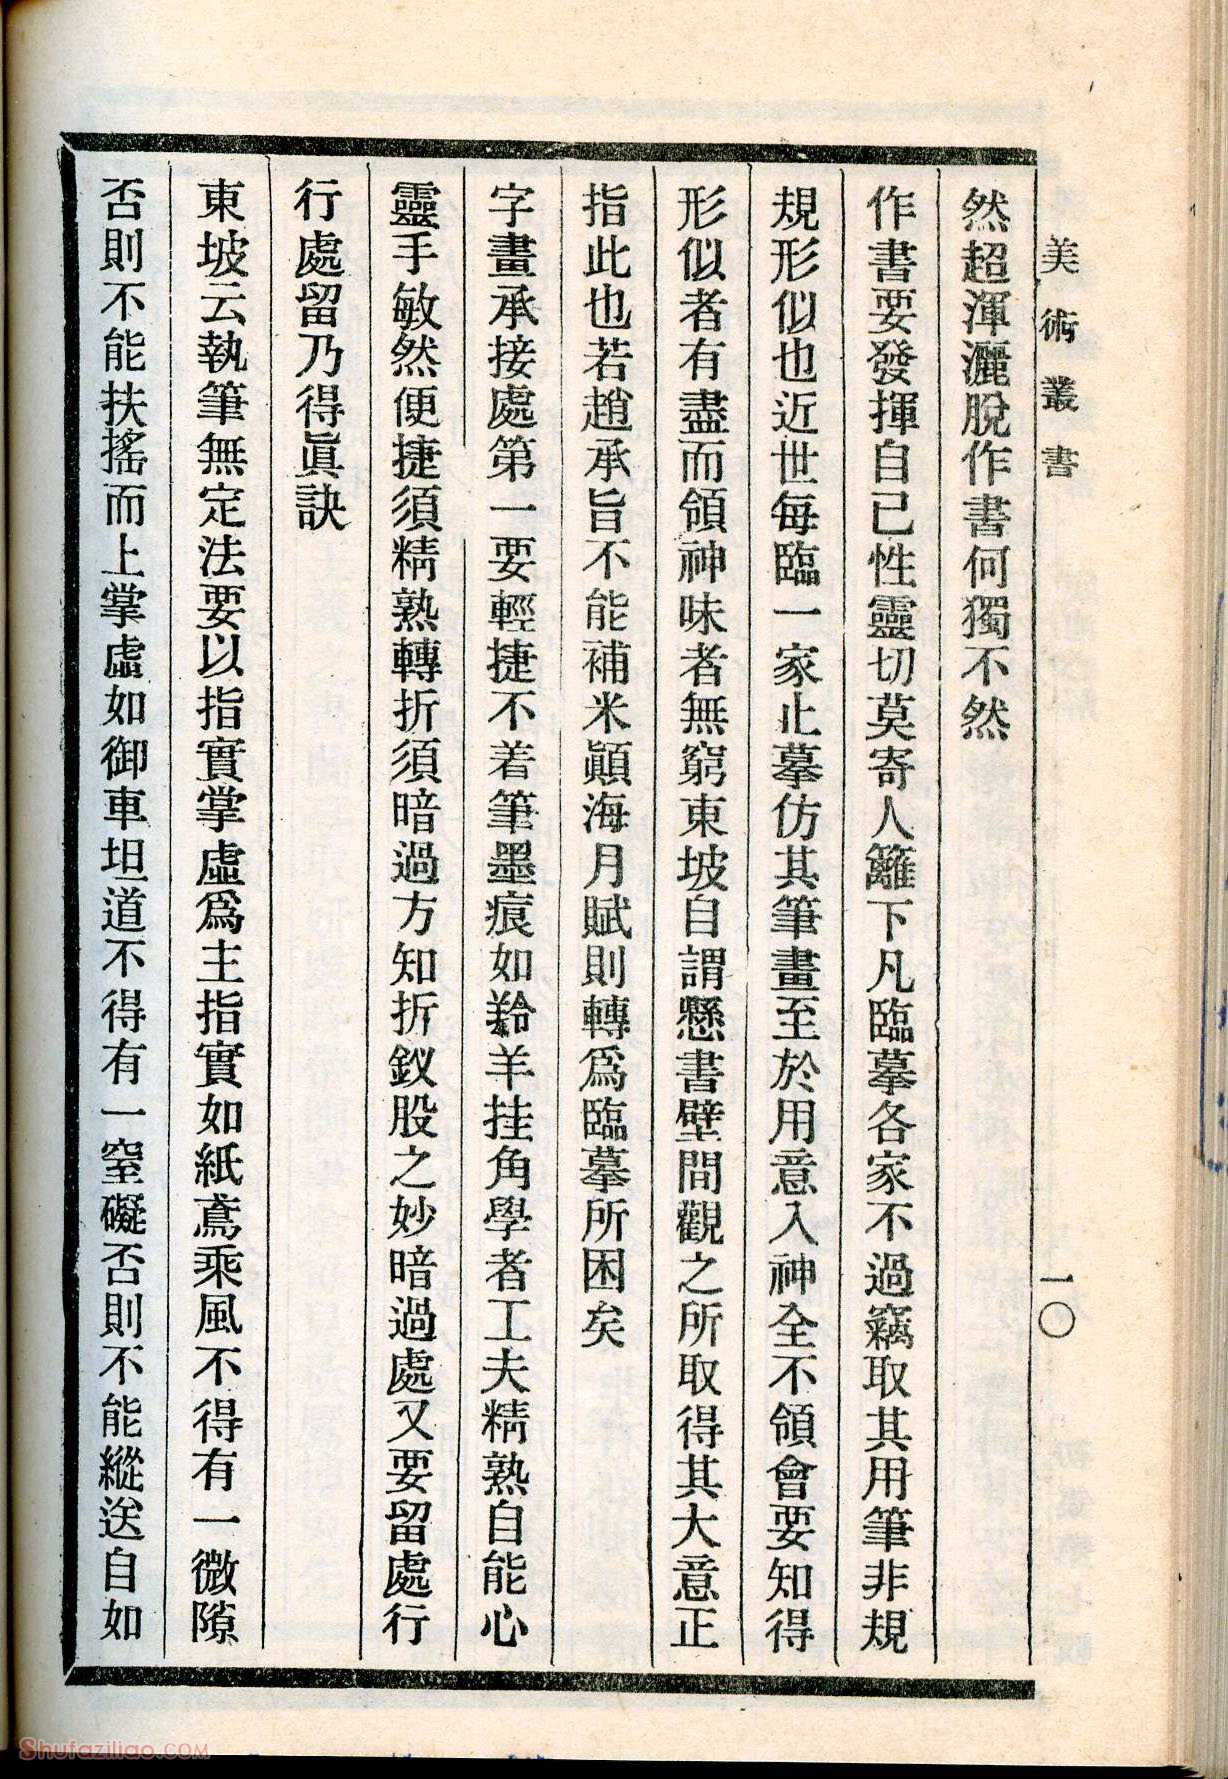 美術叢書 一〇
然超渾灑脫作書何獨不然
作書要發揮自已性靈切莫寄人籬下凡臨摹各家不過竊取其用筆非規
規形似也近世每臨一家止摹仿其筆畫至於用意入神全不領會要知得
形似者有盡而領神味者無窮東坡自謂懸書壁間觀之所取得其大意正
指此也若趙承旨不能補米顚海月賦則轉爲臨摹所困矣
字畫承接處第一要輕捷不着筆墨痕如羚羊挂角學者工夫精熟自能心
靈手敏然便捷須精熟轉折須暗過方知折釵股之妙暗過處又要留處行
行處留乃得眞訣
東坡云執筆無定法要以指實掌虛爲主指實如紙鳶乘風不得有一微隙
否則不能扶搖而上掌虛如御車坦道不得有一窒礙否則不能縱送自如
Shufaziliao.COM